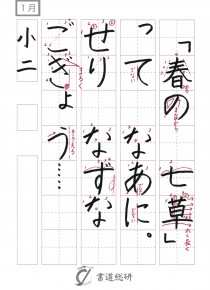 1月
「春の 七草」
って なあに。
せり なずな
ごぎょう……
小二
書道総研